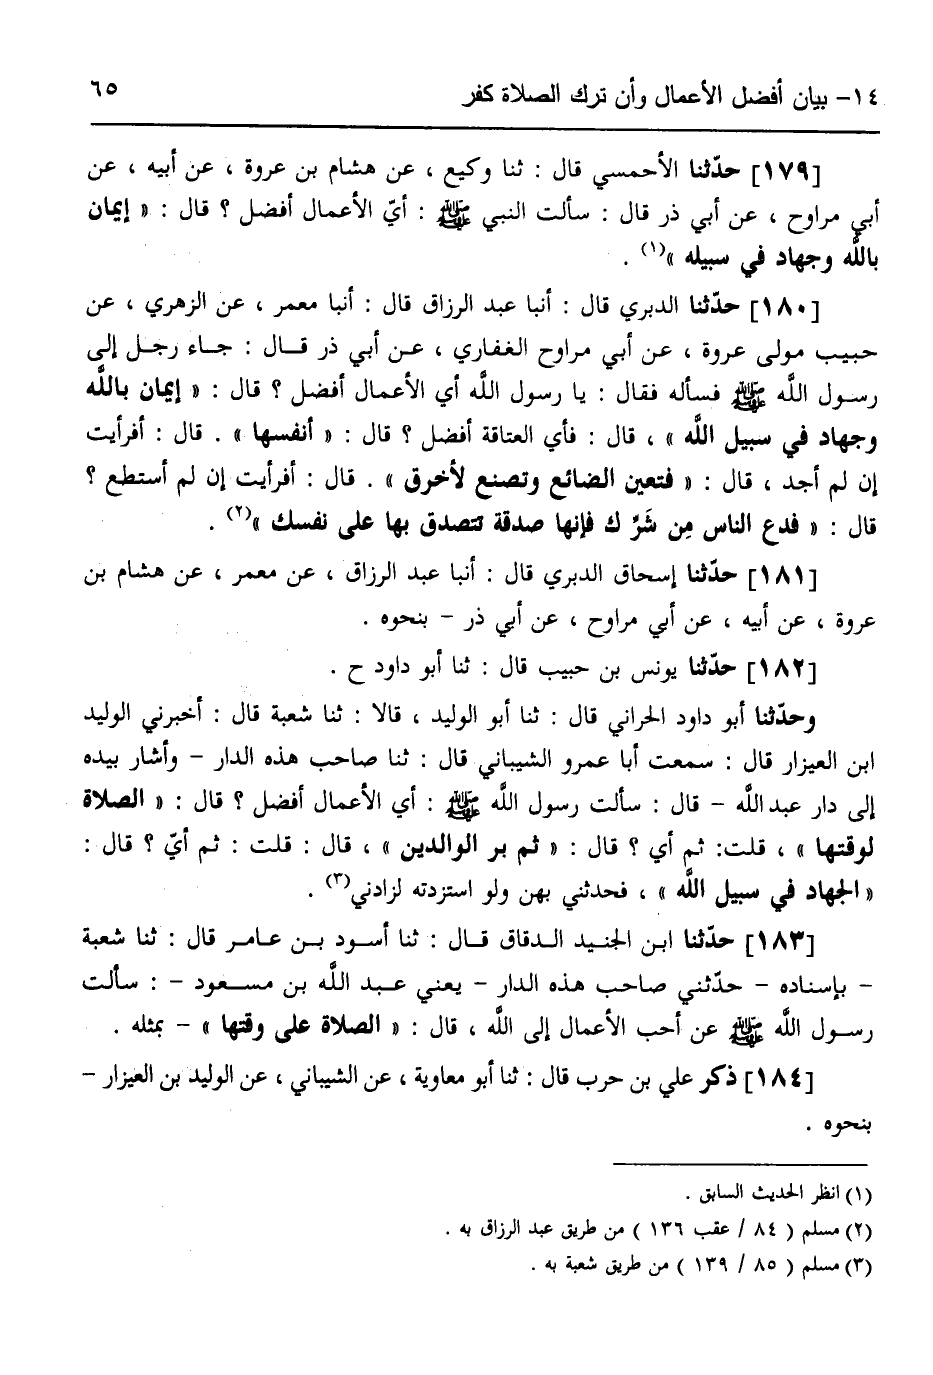 ١٤- بيان أفضل الأعمال وأن ترك الصلاة كفر ٦٥
[١٧٩] حدّثنا الأحمسي قال : ثنا وكيع ، عن هشام بن عروة ، عن أبيه ، عن
أبي مراوح ، عن أبي ذر قال : سألت النبي ﷺ : أيّ الأعمال أفضل ؟ قال : « إيمان
باللَّه وجهاد في سبيله »(١) .
[١٨٠] حدّثنا الدبري قال : أنبا عبد الرزاق قال : أنبا معمر ، عن الزهري ، عن
حبيب مولى عروة ، عن أبي مراوح الغفاري ، عن أبي ذر قال : جاء رجل إلى
رسول اللَّه ﷺ فسأله فقال : يا رسول اللَّه أي الأعمال أفضل ؟ قال : « إيمان باللَّه
وجهاد في سبيل اللَّه » ، قال : فأي العتاقة أفضل ؟ قال : « أنفسها » . قال : أفرأيت
إن لم أجد ، قال : « فتعين الضائع وتصنع لأخرق » . قال : أفرأيت إن لم أستطع ؟
قال : « فدع الناس مِن شَرِّ ك فإنها صدقة تتصدق بها على نفسك »(٢) .
[١٨١] حدّثنا إسحاق الدبري قال : أنبا عبد الرزاق ، عن معمر ، عن هشام بن
عروة ، عن أبيه ، عن أبي مراوح ، عن أبي ذر – بنحوه .
[١٨٢] حدّثنا يونس بن حبيب قال : ثنا أبو داود ح .
وحدّثنا أبو داود الحراني قال : ثنا أبو الوليد ، قالا : ثنا شعبة قال : أخبرني الوليد
ابن العيزار قال : سمعت أبا عمرو الشيباني قال : ثنا صاحب هذه الدار – وأشار بيده
إلى دار عبد اللَّه – قال : سألت رسول اللَّه ﷺ : أي الأعمال أفضل ؟ قال : « الصلاة
لوقتها » ، قلت: ثم أي ؟ قال : « ثم بر الوالدين » ، قال : قلت : ثم أيّ ؟ قال :
« الجهاد في سبيل اللَّه » ، فحدثني بهن ولو استزدته لزادني(٣) .
[١٨٣] حدّثنا ابن الجنيد الدقاق قال : ثنا أسود بن عامر قال : ثنا شعبة
– بإسناده – حدّثني صاحب هذه الدار – يعني عبد اللَّه بن مسعود – : سألت
رسول اللَّه ﷺ عن أحب الأعمال إلى اللَّه ، قال : « الصلاة على وقتها » – بمثله .
[١٨٤] ذكر علي بن حرب قال : ثنا أبو معاوية ، عن الشيباني ، عن الوليد بن العيزار –
بنحوه .
(١) انظر الحديث السابق .
(٢) مسلم ( ٨٤ / عقب ١٣٦ ) من طريق عبد الرزاق به .
(٣) مسلم ( ٨٥ / ١٣٩ ) من طريق شعبة به .